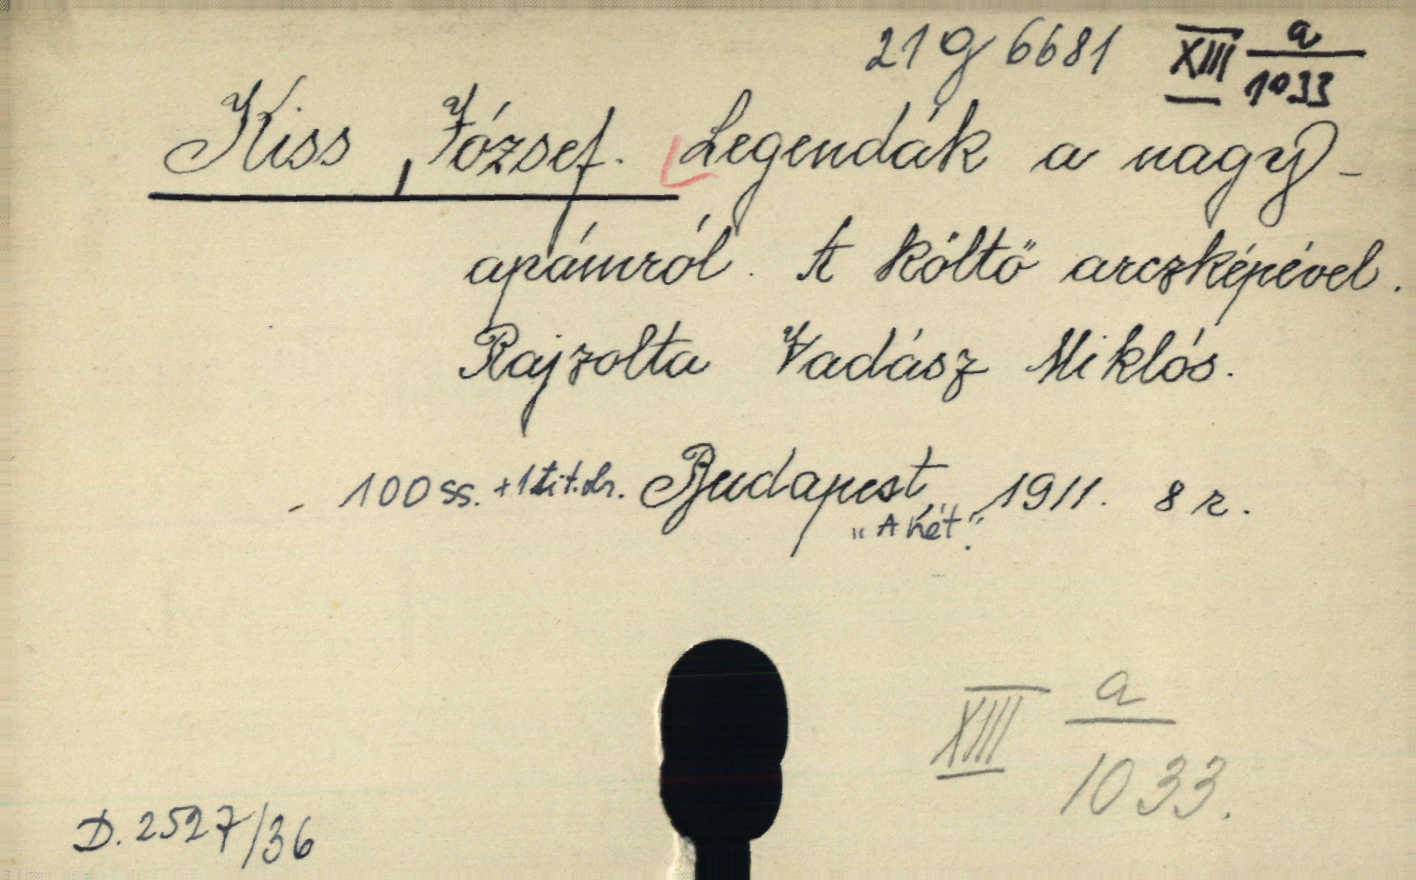 21 g 6681 XIII a/1033
Kiss, József. Legendák a nagy-
apámról. A költő arczképével.
Rajzolta Vadász Miklós.
- 100 ss. + 1 tit. Budapest, 1911. 8 r.
"A hét".
XIII a/1033.
D. 2527/36